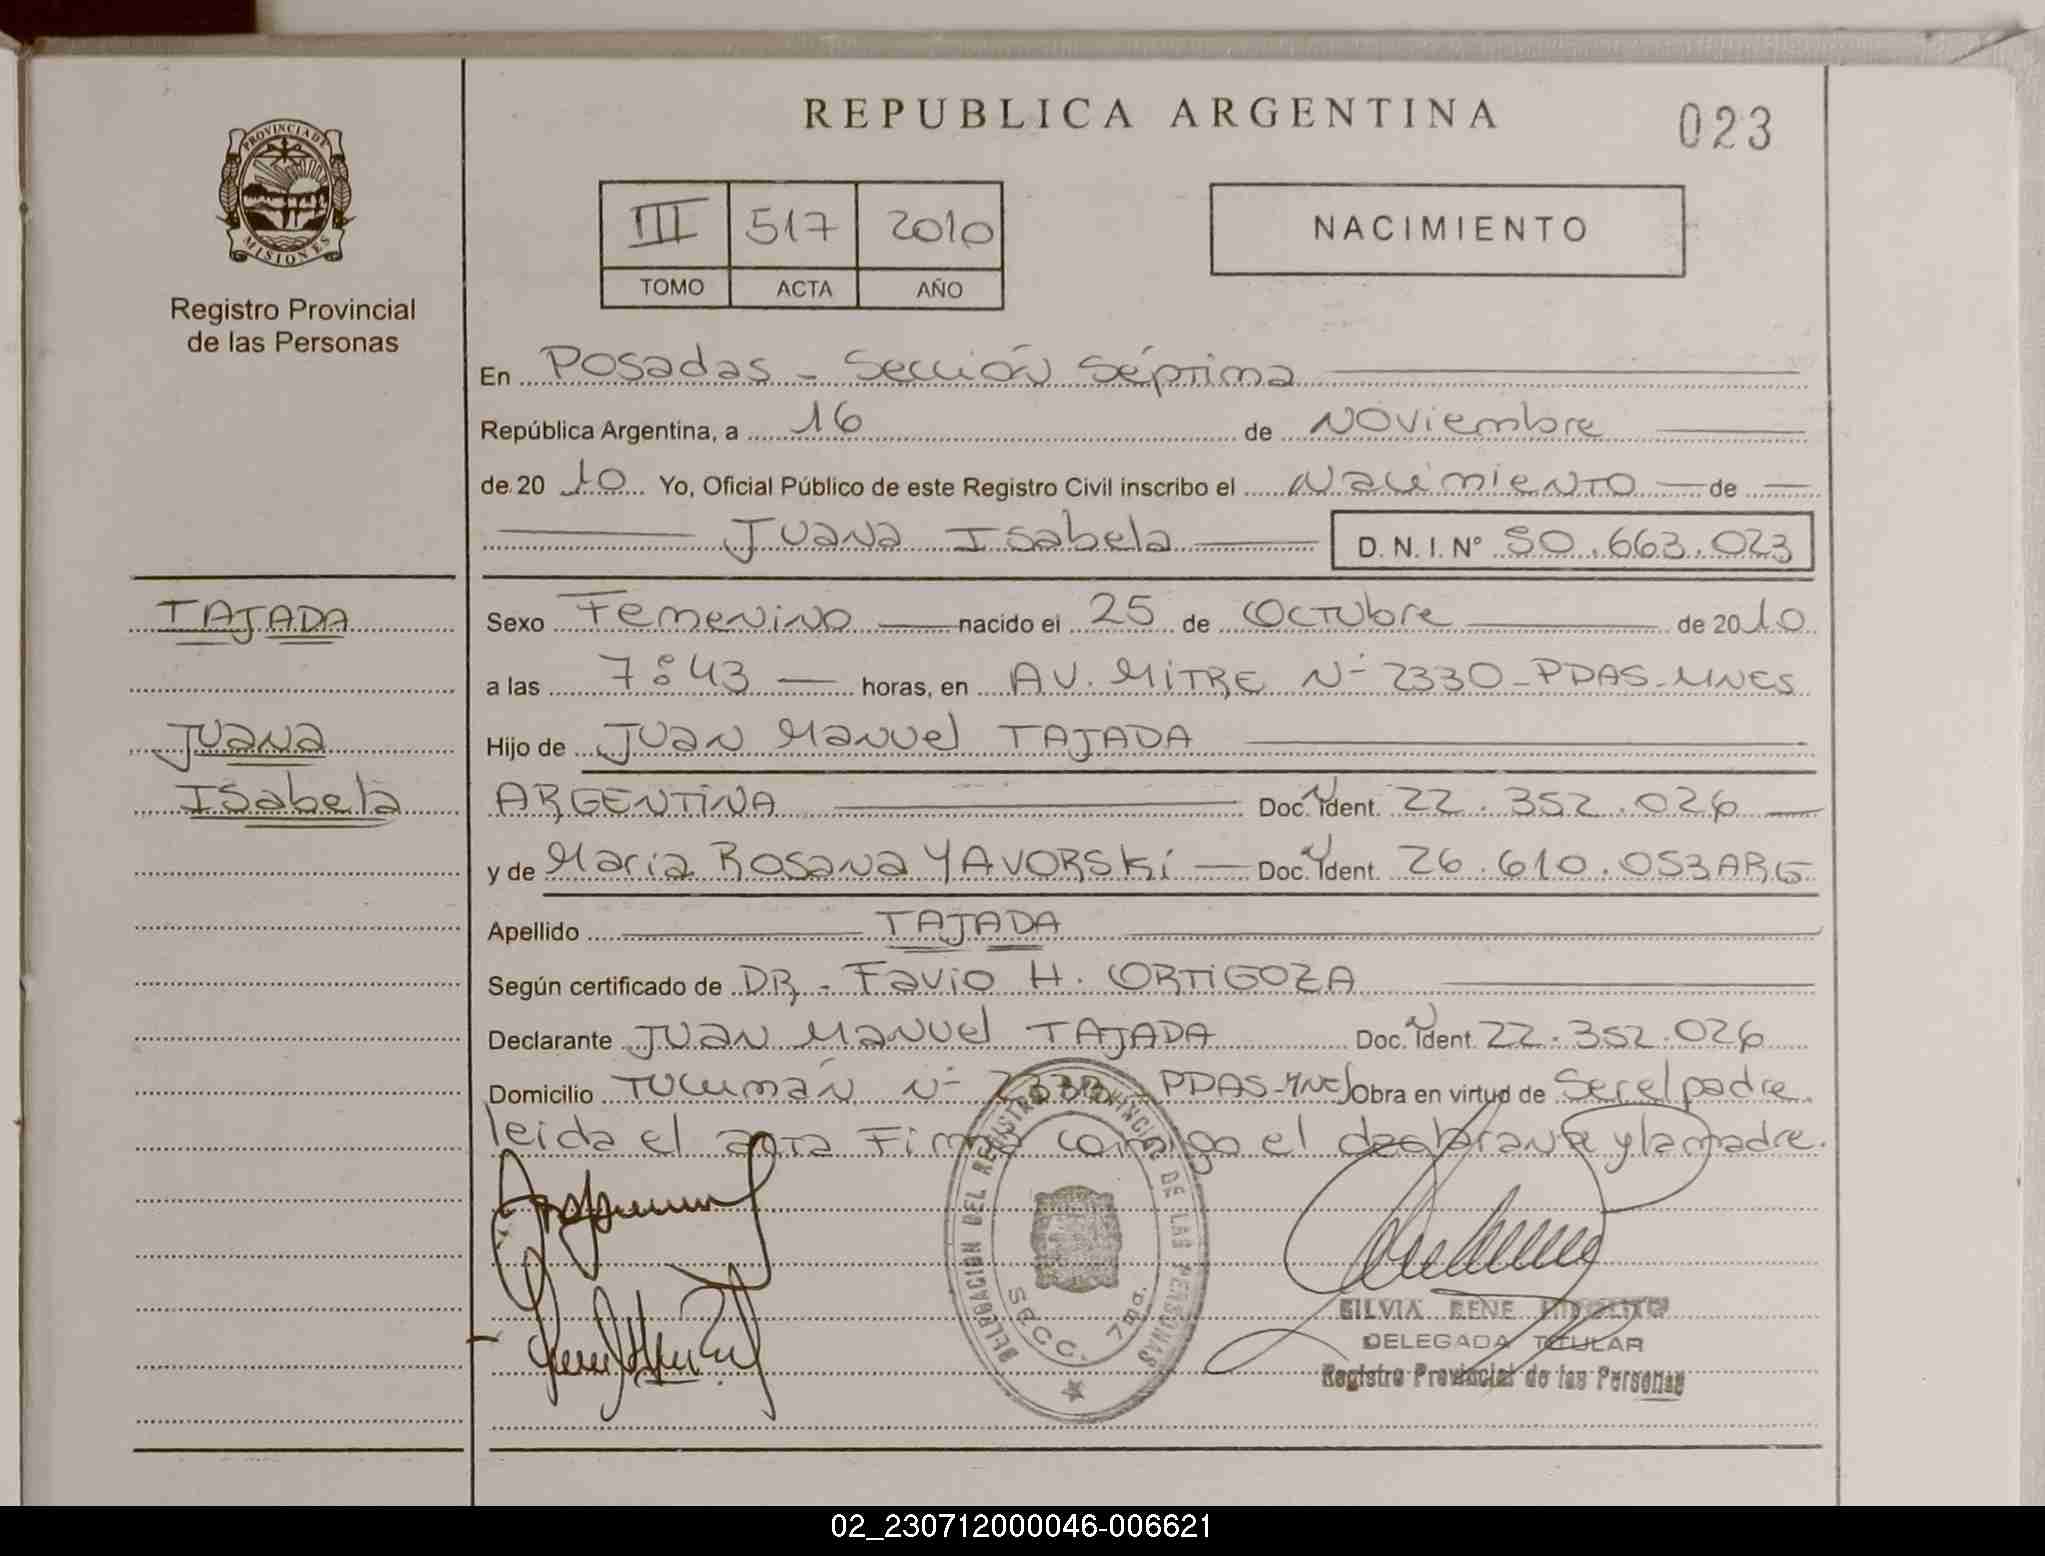 REPUBLICA ARGENTINA
023
PROVINCIA DE
MISIONES
Registro Provincial
de las Personas
III 517 2010
TOMO ACTA AÑO
NACIMIENTO
En Posadas - Sección Séptima
República Argentina, a 16 de Noviembre
de 20 10 Yo, Oficial Público de este Registro Civil inscribo el Nacimiento de
Juana Isabela D. N. I. Nº 50.663.023
TAJADA
Juana
Isabela
Sexo Femenino nacido el 25 de Octubre de 20 10
a las 7:43 horas, en AV. MITRE N- 2330-PDAS-MNES
Hijo de Juan Manuel TAJADA
ARGENTINA Doc. Ident. 22.352.026
y de Maria Rosana YAVORSKI Doc. Ident. 26.610.053 ARG
Apellido TAJADA
Según certificado de DR. Favio H. ORTIGOZA
Declarante Juan Manuel TAJADA Doc. Ident. 22.352.026
Domicilio Tucumán N- 2330 PDAS-MNES Obra en virtud de Ser el padre
leida el acta Firma conmigo el declarante y la madre.
DELEGACION DEL REGISTRO PROVINCIAL DE LAS PERSONAS
SECC. 7ma.
SILVIA RENE HIPOLITO
DELEGADA TITULAR
Registro Provincial de las Personas
02_230712000046-006621